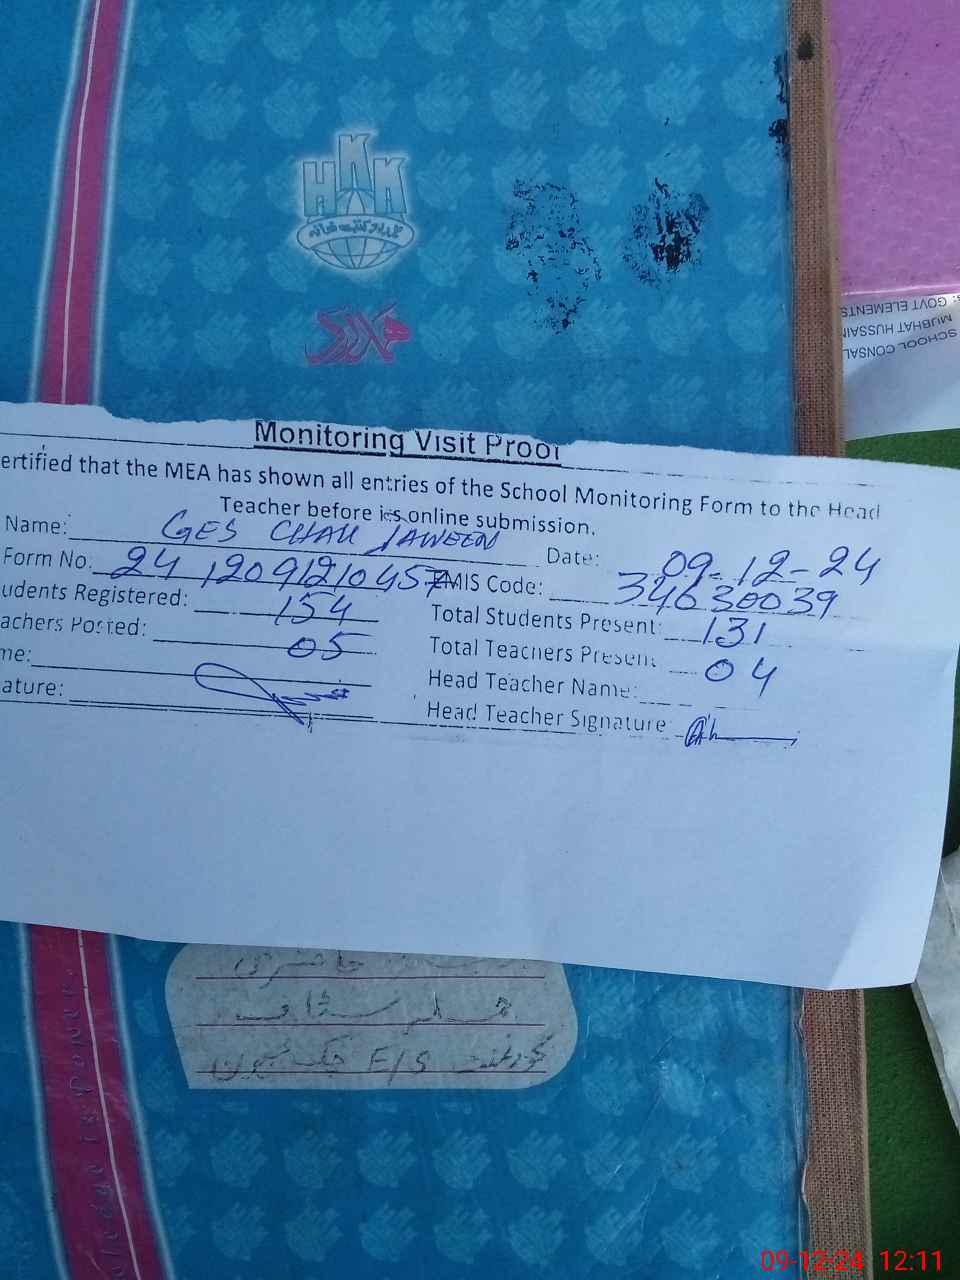 HKK
SCHOOL CONSAL
MUBHAT HUSSAIN
GOVT ELEMENTS
Monitoring Visit Proof
ertified that the MEA has shown all entries of the School Monitoring Form to the Head
Teacher before its online submission.
Name: GES CHAK Date: 09-12-24
Form No: 2412091210457 EMIS Code: 34630039
udents Registered: 154 Total Students Present: 131
achers Posted: 05 Total Teachers Present 04
me: Head Teacher Name:
ature: Head Teacher Signature
حاضری
گورنمنٹ E/S چک
09-12-24 12:11